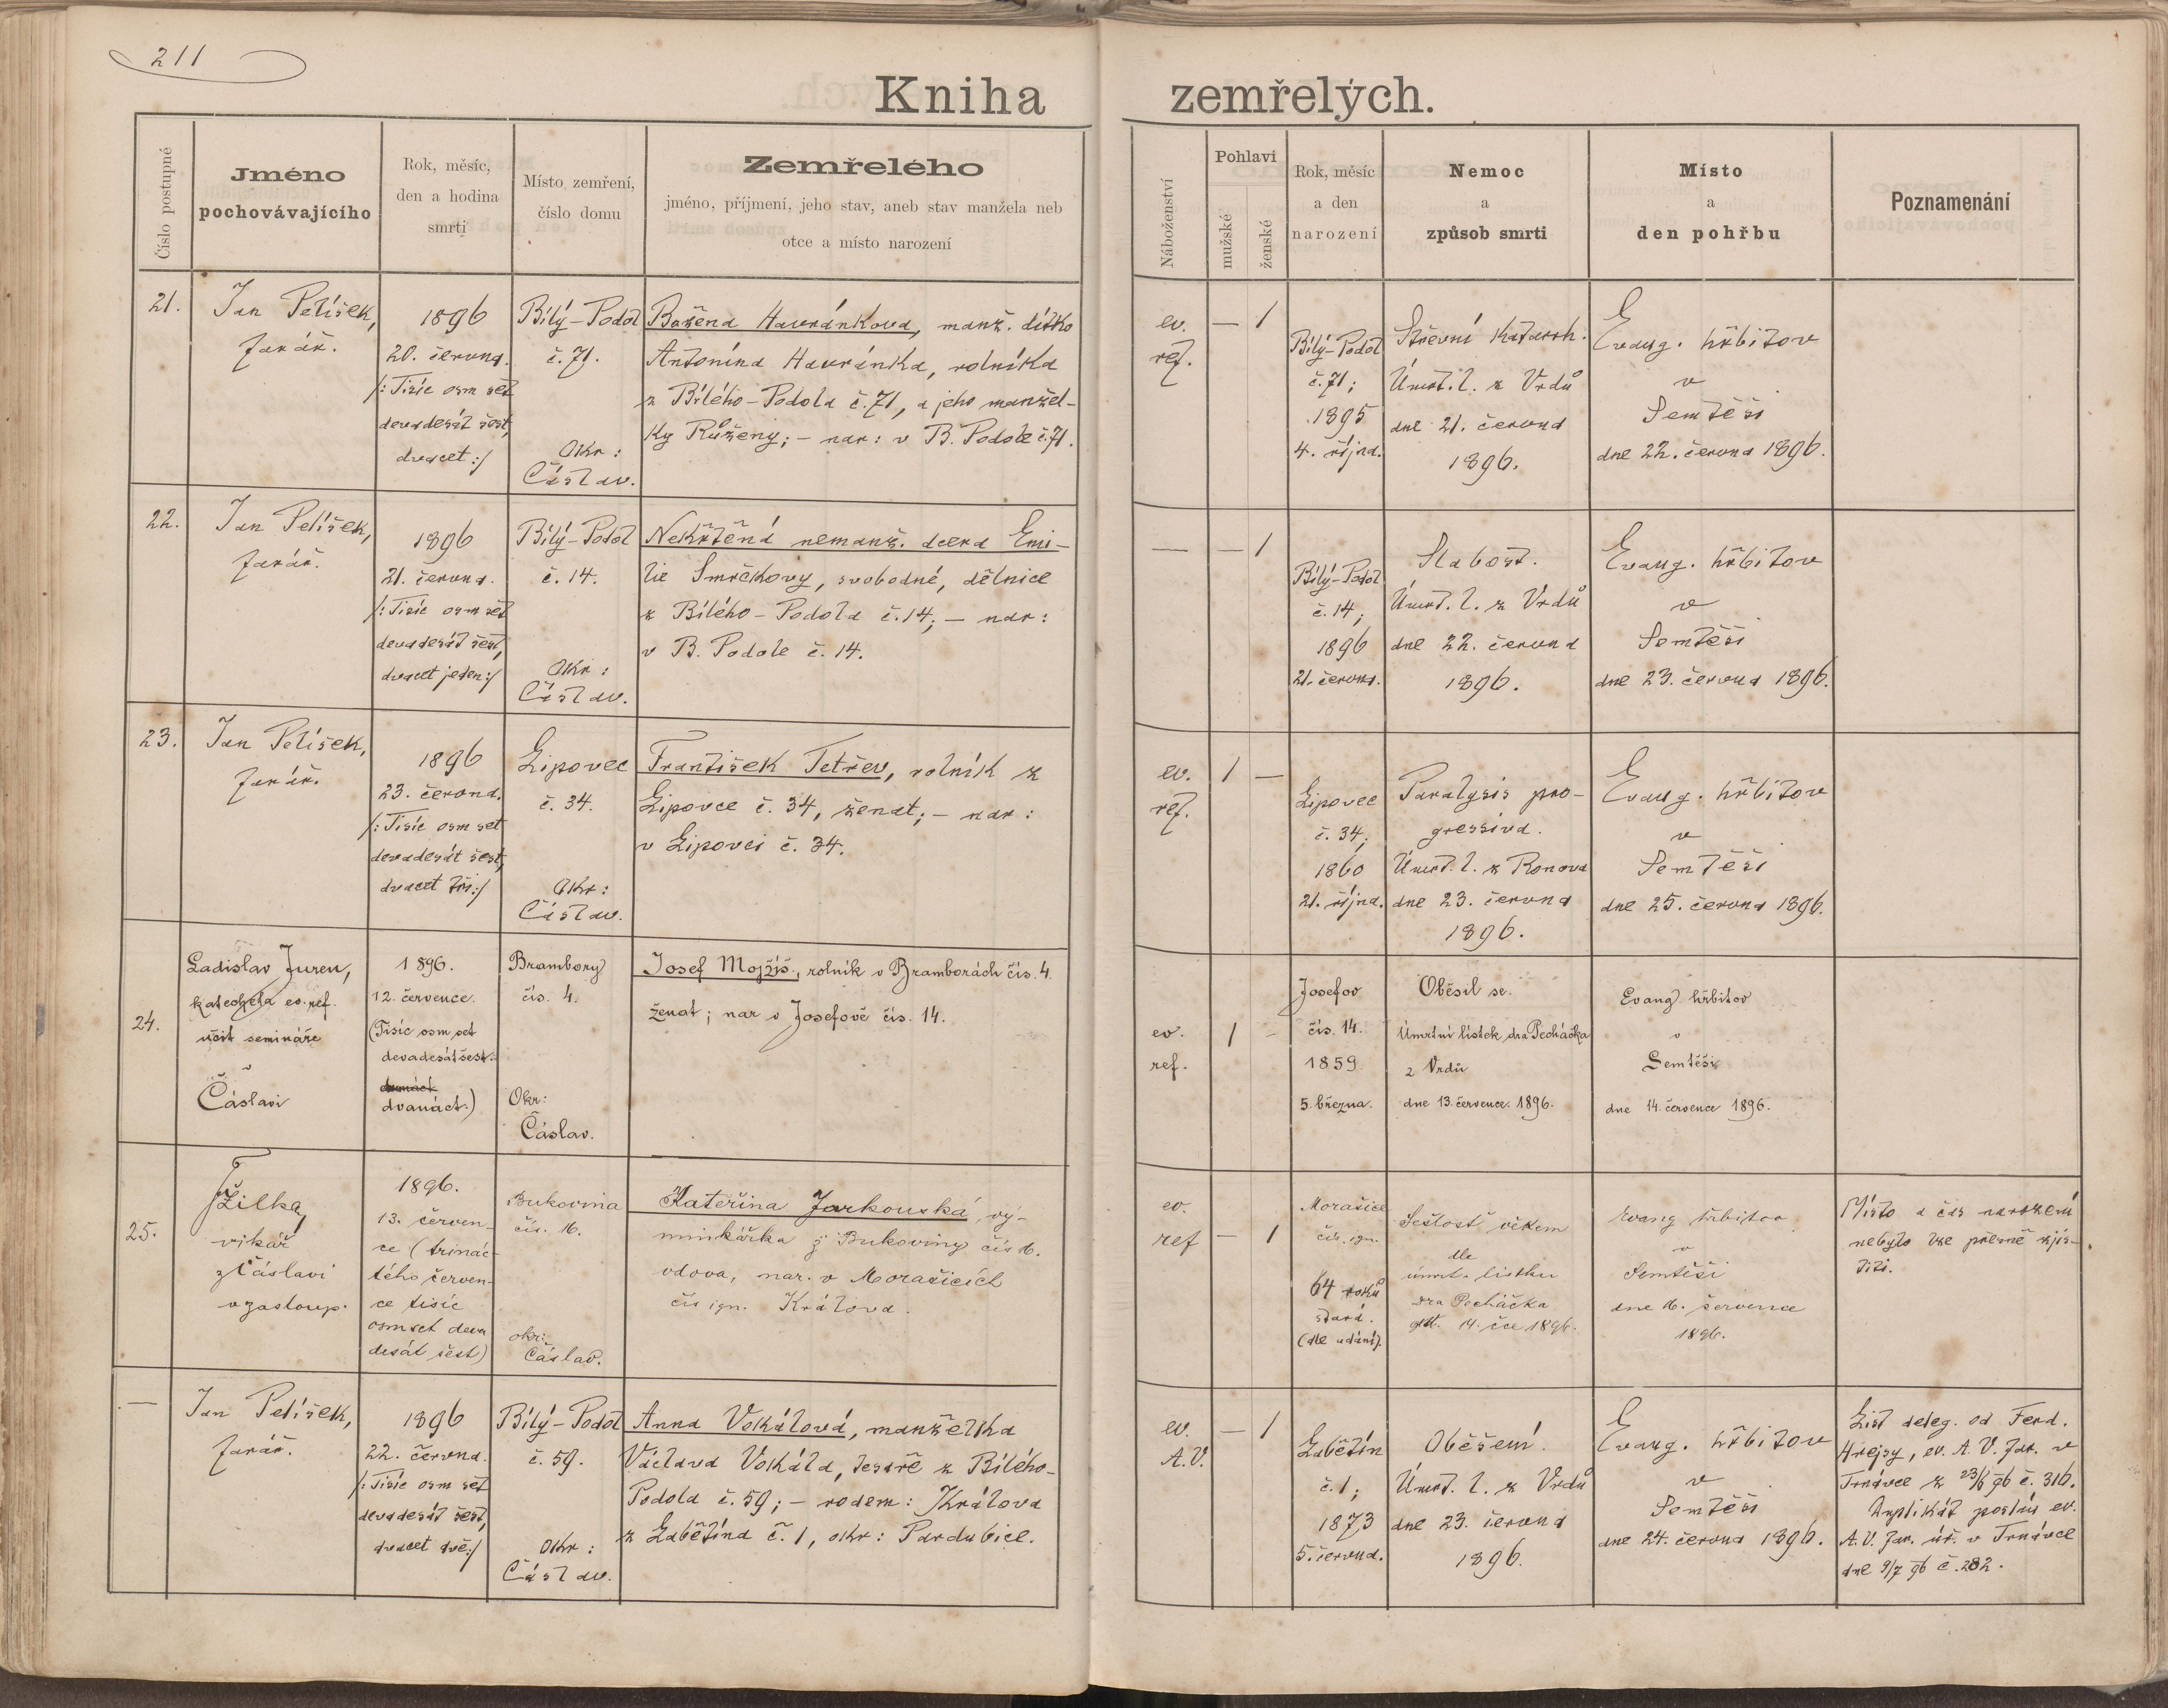 211
Kniha zemřelých.
Číslo postupné
Jméno
pochovávajícího
Rok, měsíc,
den a hodina
smrti
Místo zemření,
číslo domu
Zemřelého
jméno, příjmení, jeho stav, aneb stav manžela neb
otce a místo narození
Náboženství
Pohlavi
mužské
ženské
Rok, měsíc
a den
narození
Nemoc
a
způsob smrti
Místo
a
den pohřbu
Poznamenání
21.
Jan Pelíšek,
farář.
1896
20. června.
/: Tisíc osm set
devadesát šest,
dvacet :/
Bílý-Podol
č. 71.
Okr:
Čáslav.
Božena Havránkova, manž. dítko
Antonína Havránka, rolníka
z Bílého-Podola č. 71, a jeho manžel-
ky Růženy; – nar: v B. Podole č. 71.
ev.
ref.
— 1
Bílý-Podol
č. 71;
1895
4. října.
Střevní katarrh.
Úmrt. l. z Vrdů
dne 21. června
1896.
Evang. hřbitov
v
Semtěši
dne 22. června 1896.
22.
Jan Pelíšek,
farář.
1896
21. června.
/: Tisíc osm set
devadesát šest,
dvacet jeden :/
Bílý-Podol
č. 14.
Okr:
Čáslav.
Nekřtěná nemanž. dcera Emi-
lie Smrčkovy, svobodné, dělnice
z Bílého-Podola č. 14; – nar:
v B. Podole č. 14.
—
— 1
Bílý-Podol
č. 14;
1896
21. června.
Slabost.
Úmrt. l. z Vrdů
dne 22. června
1896.
Evang. hřbitov
v
Semtěši
dne 23. června 1896.
23.
Jan Pelíšek,
farář.
1896
23. června.
/: Tisíc osm set
devadesát šest,
dvacet tři :/
Lipovec
č. 34.
Okr:
Čáslav.
František Tetřev, rolník z
Lipovce č. 34, ženat; – nar:
v Lipovci č. 34.
ev.
ref.
1 —
Lipovec
č. 34;
1860
21. října.
Paralysis pro-
gressiva.
Úmrt. l. z Ronova
dne 23. června
1896.
Evang. hřbitov
v
Semtěši
dne 25. června 1896.
24.
Ladislav Juren,
katecheta ev. ref.
učit semináře
v
Čáslavi
1896.
12. července.
(Tisíc osm set
devadesát šest.
dvanáct.)
Brambory
čís. 4.
Okr:
Čáslav.
Josef Mojžíš, rolník v Bramborách čís. 4.
ženat; nar v Josefově čís. 14.
ev.
ref.
1 -
Josefov
čís. 14.
1859.
5. března.
Oběsil se.
Úmrtní lístek dra Pecháčka
z Vrdů
dne 13. července. 1896.
Evang hřbitov
v
Semtěši
dne 14. července 1896.
25.
Žilka,
vikář
z Čáslavi
v zastoup.
1896.
13. červen-
ce (trinác-
tého červen-
ce tisíc
osmset deva
desát šest)
Bukovina
čís. 16.
okr:
Čáslav.
Kateřina Jarkouská, vý-
minkářka z Bukoviny čís 16.
vdova, nar. v Morašicích
čís ign. Králova.
ev.
ref
— 1
Morašice
čís. ign.
64 roků
stará.
(dle udání).
Sešlosť věkem
dle
úmrt. lístku
dra Pecháčka
ddt. 14. čce 1896.
Evang hřbitov
v
Semtěši
dne 16. července
1896.
Místo a čas narození
nebylo lze přesně zjis-
titi.
—
Jan Pelíšek,
farář.
1896
22. června.
/: Tisíc osm set
devadesát šest,
dvacet dvě :/
Bílý-Podol
č. 59.
Okr:
Čáslav.
Anna Vokálová, manželka
Václava Vokála, tesaře z Bílého-
Podola č. 59; – rodem: Králova
z Labětína č. 1, okr: Pardubice.
ev.
A.V.
— 1
Labětín
č. 1;
1873
5. června.
Oběšení.
Úmrt. l. z Vrdů
dne 23. června
1896.
Evang. hřbitov
v
Semtěši
dne 24. června 1896.
List deleg. od Ferd.
Hrejsy, ev. A. V. far. v
Trnávce z 23/6 96 č. 316.
Duplikát poslán ev.
A. V. far. úř. v Trnávce
dne 9/7 96 č. 282.